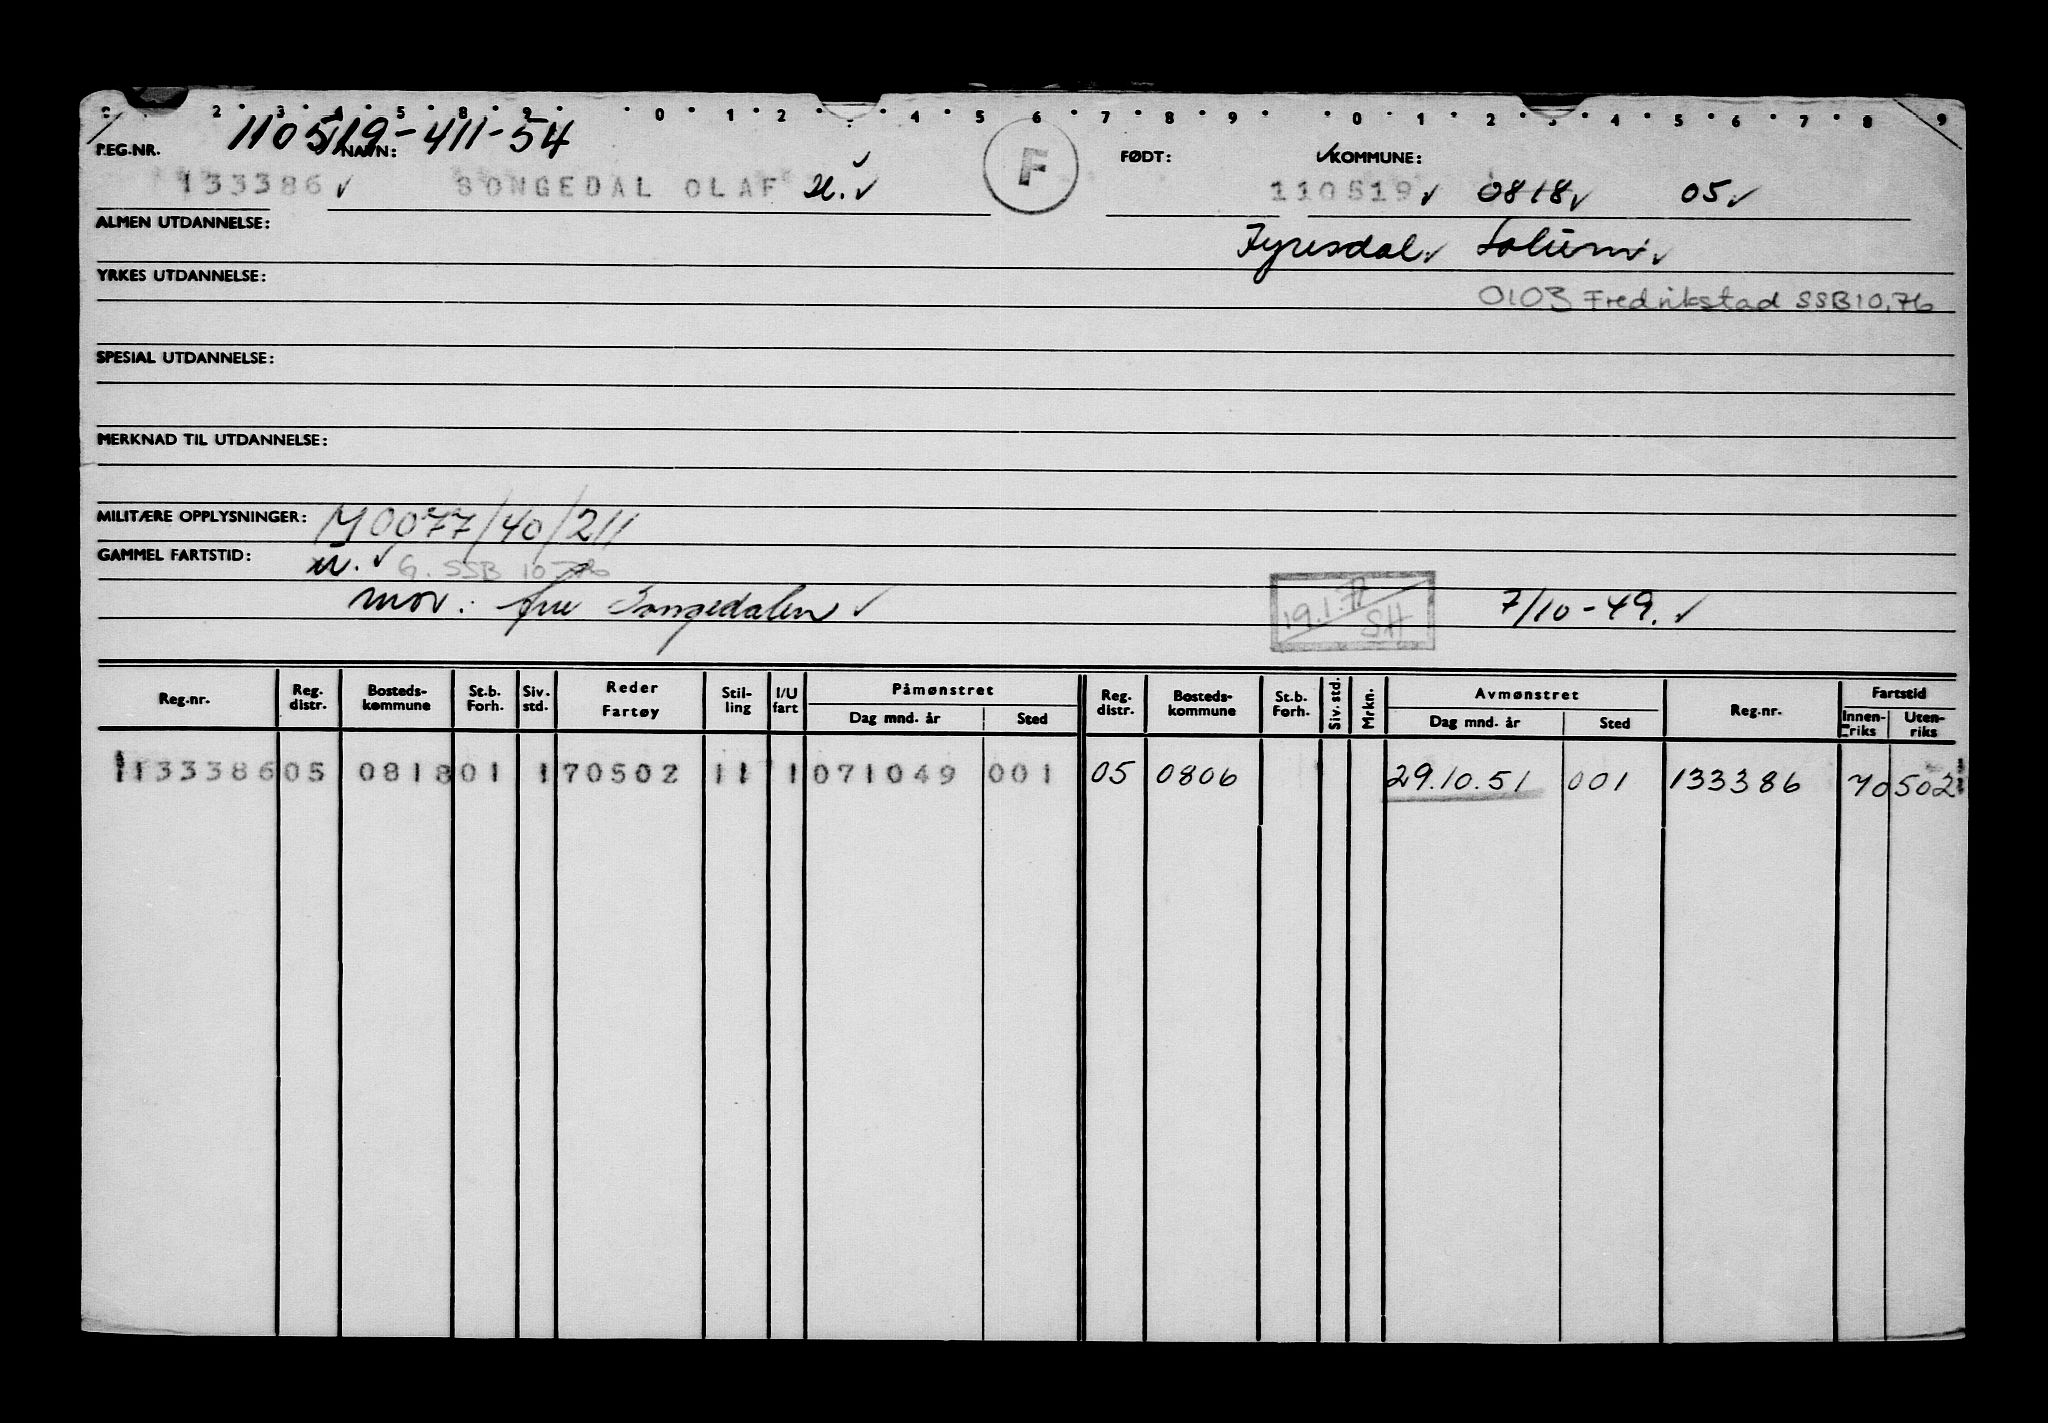 2 3 4 5 8 9 0 1 2 4 5 6 7 8 9 0 1 2 3 4 5 6 7 8 9
110519-411-54
REG.NR. NAVN: FØDT: KOMMUNE:
133386 ✓ SONGEDAL OLAF ✓ F 110519 ✓ 0818 ✓ 05 ✓
ALMEN UTDANNELSE:
Fyresdal ✓ Solum ✓
YRKES UTDANNELSE:
0103 Fredrikstad SSB 10.76
SPESIAL UTDANNELSE:
MERKNAD TIL UTDANNELSE:
MILITÆRE OPPLYSNINGER: M0077/40/211
GAMMEL FARTSTID: ✓ G. SSB 10.76
mor: fru Songedalen ✓ 19.1.77 SH 7/10-49. ✓
Reg.nr. Reg. distr. Bosteds-kommune St.b. Forh. Siv. std. Reder Fartøy Stil-ling I/U fart Påmønstret Dag mnd. år Sted Reg. distr. Bosteds-kommune St.b. Forh. Siv. std. Mrkn. Avmønstret Dag mnd. år Sted Reg.nr. Fartstid Innen-riks Uten-riks
133386 05 0818 01 1 70502 11 1 071049 001 05 0806 29.10.51 001 133386 70 502